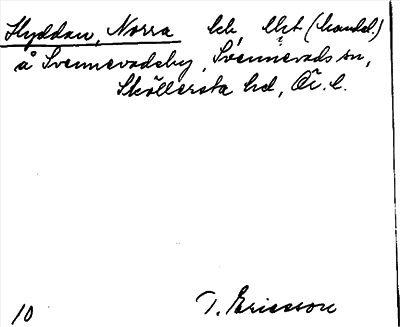 Hyddan, Norra lh, lht (handel.)
å Svennevadsby, Svennevads sn,
Sköllersta hd, Ör. l.
10 T. Ericsson